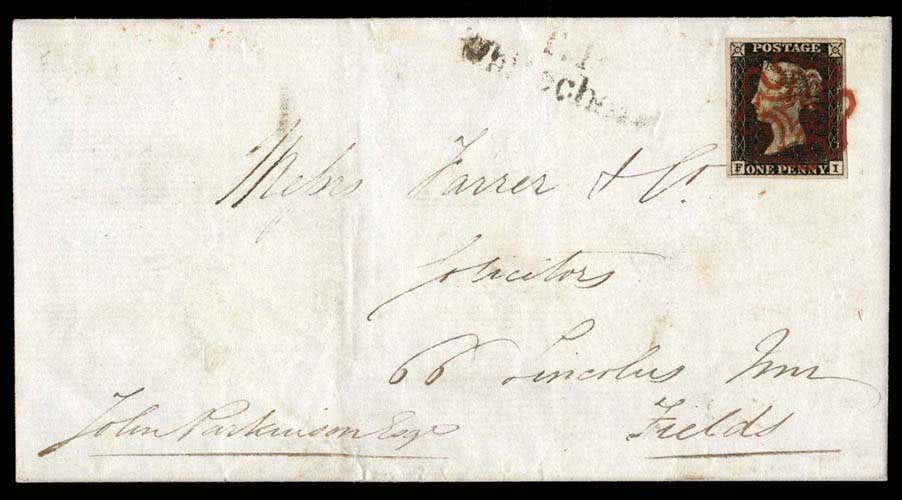 POSTAGE
F ONE PENNY I
Messrs Farrer & Co.
Solicitors
66 Lincolns Inn
Fields
John Parkinson Esqr